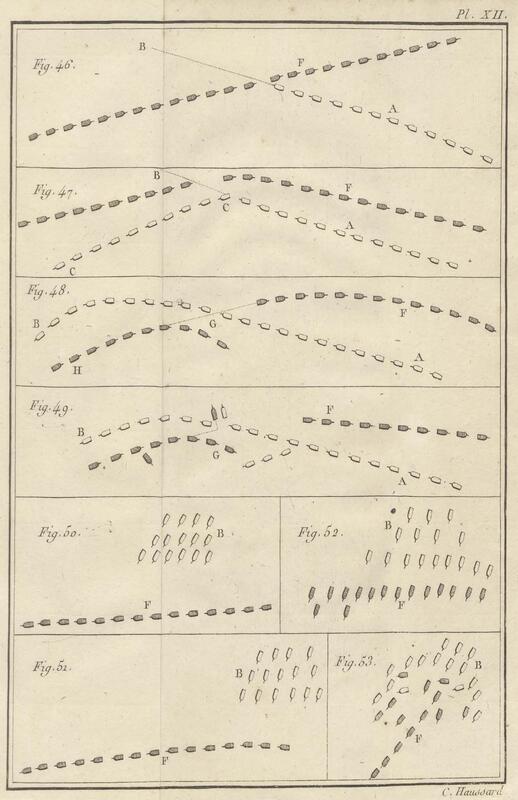 Pl. XII.
Fig. 46.
B
F
A
Fig. 47.
B
F
C
A
C
Fig. 48.
B
G
F
A
H
Fig. 49.
B
F
G
A
Fig. 50.
B
F
Fig. 52.
B
F
Fig. 51.
B
F
Fig. 53.
B
F
C. Haussard